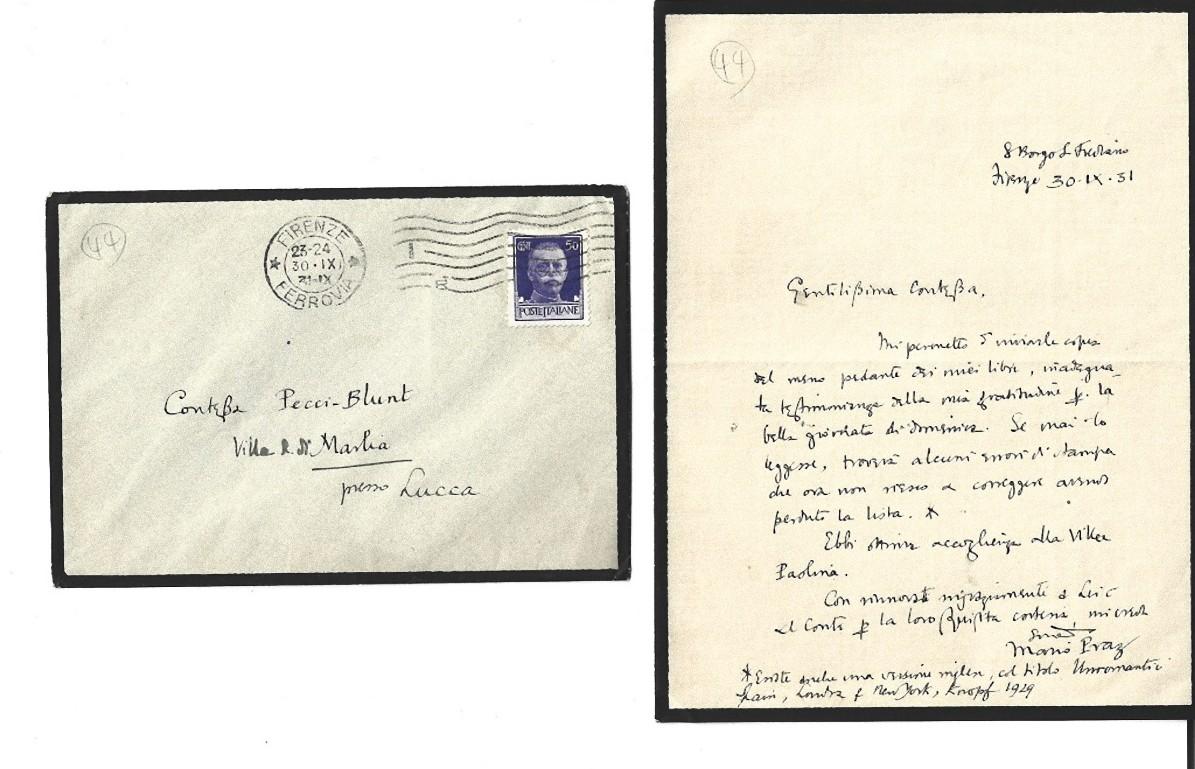 44
FIRENZE
23-24
30·IX
31-IX
FERROVIA
CENT. 50
POSTE ITALIANE
Conteßa Pecci-Blunt
Villa R. di Marlia
presso Lucca
44
8 Borgo S. Frediano
Firenze 30·IX·31
Gentilißima Conteßa,
Mi permetto d'inviarle copia
del meno pedante dei miei libri, inadegua-
ta testimonianza della mia gratitudine p. la
bella giornata di domenica. Se mai lo
leggesse, troverà alcuni errori di stampa
che ora non riesco a correggere avendo
perduto la lista. *
Ebbi ottima accoglienza alla Villa
Paolina.
Con rinnovati ringraziamenti a Lei e
al Conte p. la loro squisita cortesia, mi creda
Mario Praz
* Esiste anche una versione inglese, col titolo Unromantic
Spain, Londra & New York, Knopf 1929